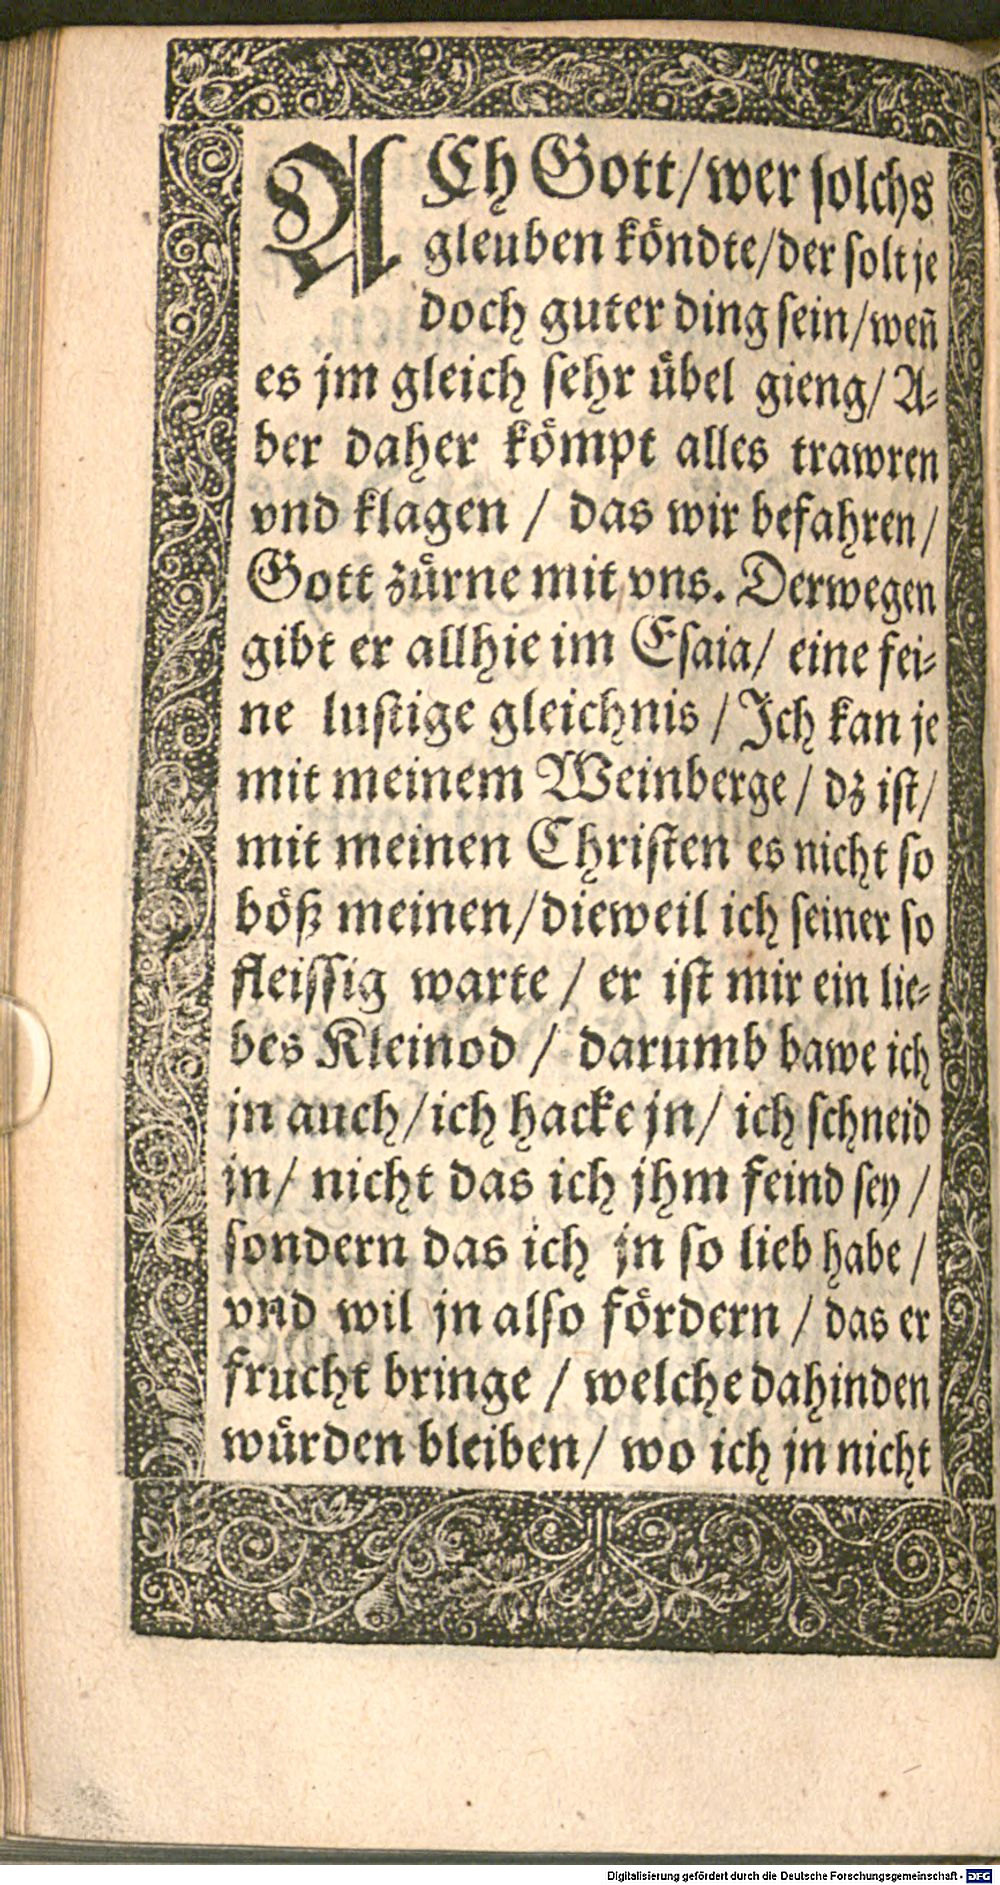 ACh Gott/wer solchs
gleuben köndte/der solt je
doch guter ding sein/weñ
es jm gleich sehr übel gieng/ A-
ber daher kömpt alles trawren
vnd klagen / das wir befahren/
Gott zürne mit vns. Derwegen
gibt er allhie im Esaia/ eine fei-
ne lustige gleichnis / Ich kan je
mit meinem Weinberge / dz ist/
mit meinen Christen es nicht so
böß meinen/dieweil ich seiner so
fleissig warte / er ist mir ein lie-
bes Kleinod / darumb bawe ich
jn auch/ich hacke jn/ ich schneid
jn/ nicht das ich jhm feind sey /
sondern das ich jn so lieb habe /
vnd wil jn also fördern / das er
frucht bringe / welche dahinden
würden bleiben/ wo ich jn nicht
Digitalisierung gefördert durch die Deutsche Forschungsgemeinschaft - DFG